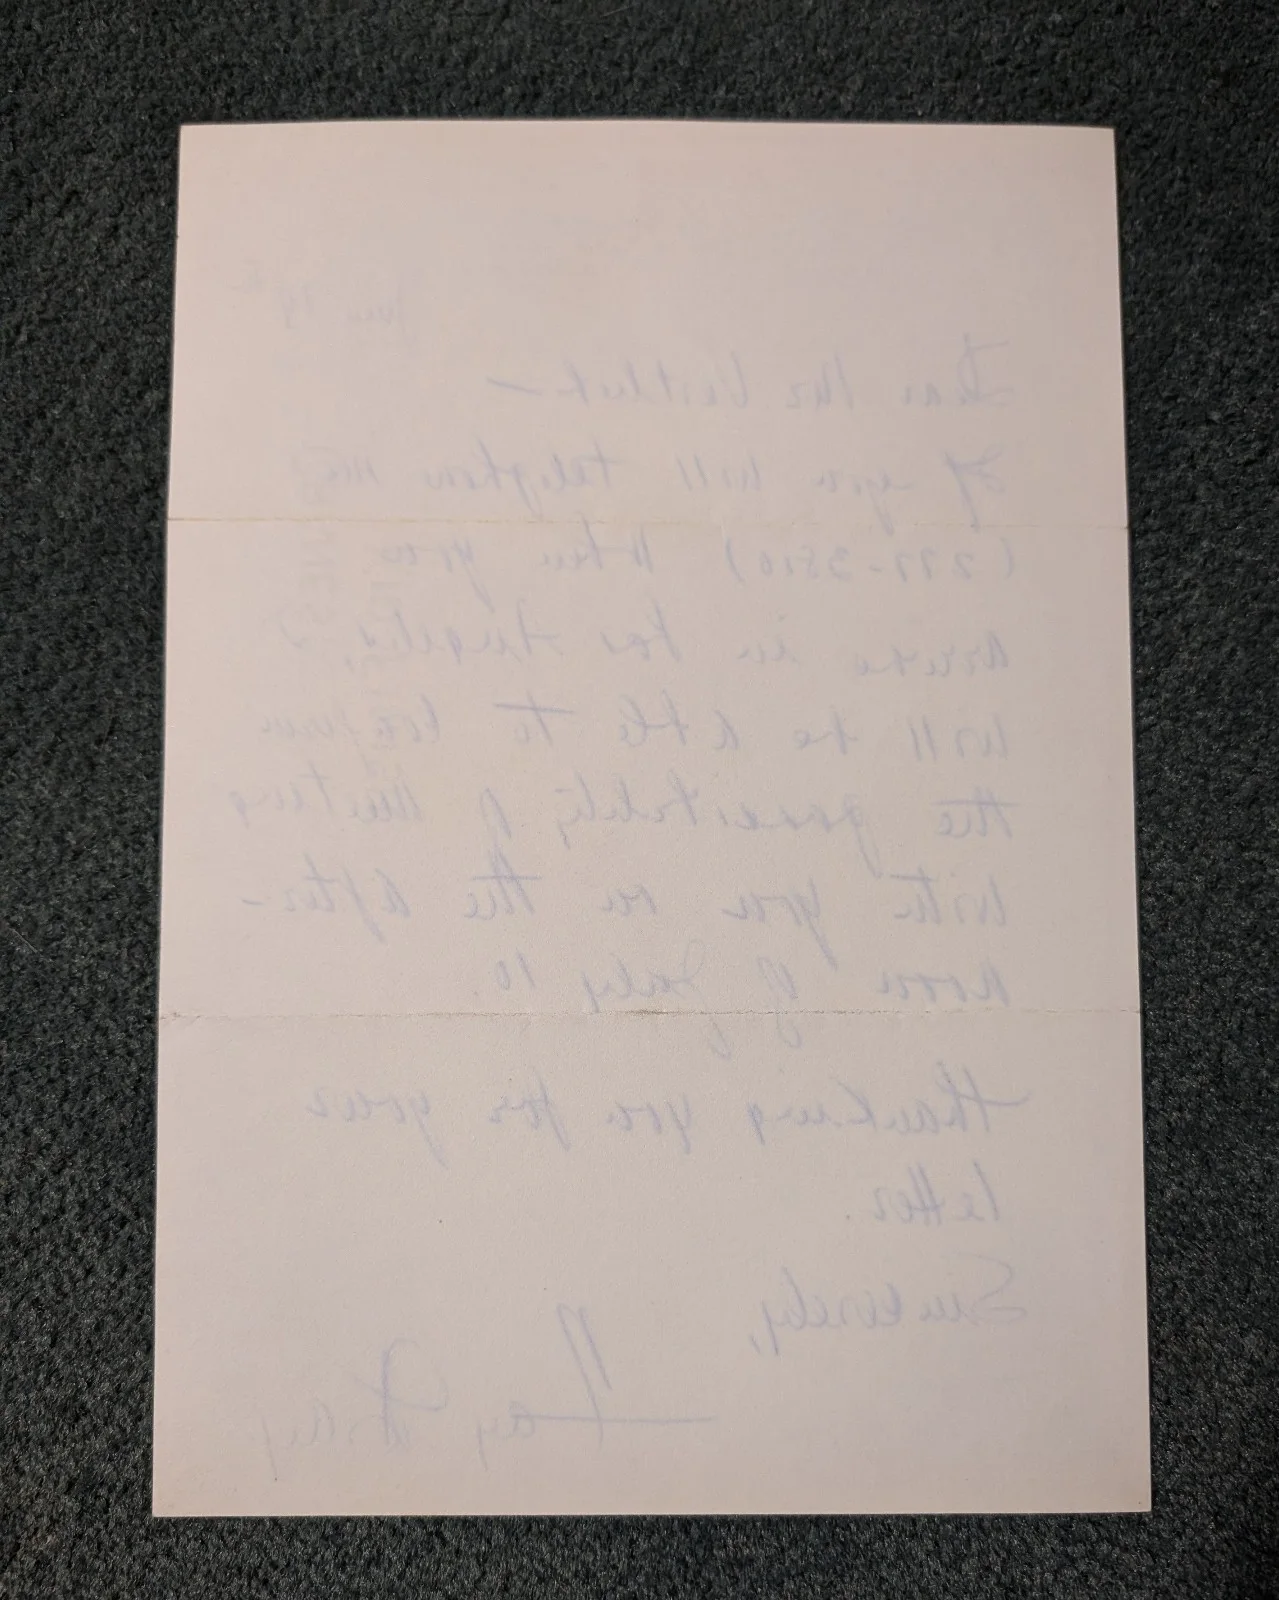 Dear Mr
If you will telephone me
(277-3810) when you
arrive in Los Angeles, I
will be able to confirm
the possibility of meeting
with you on the after-
noon of July 10.
Thanking you for your
letter.
Sincerely,
Fay Wray